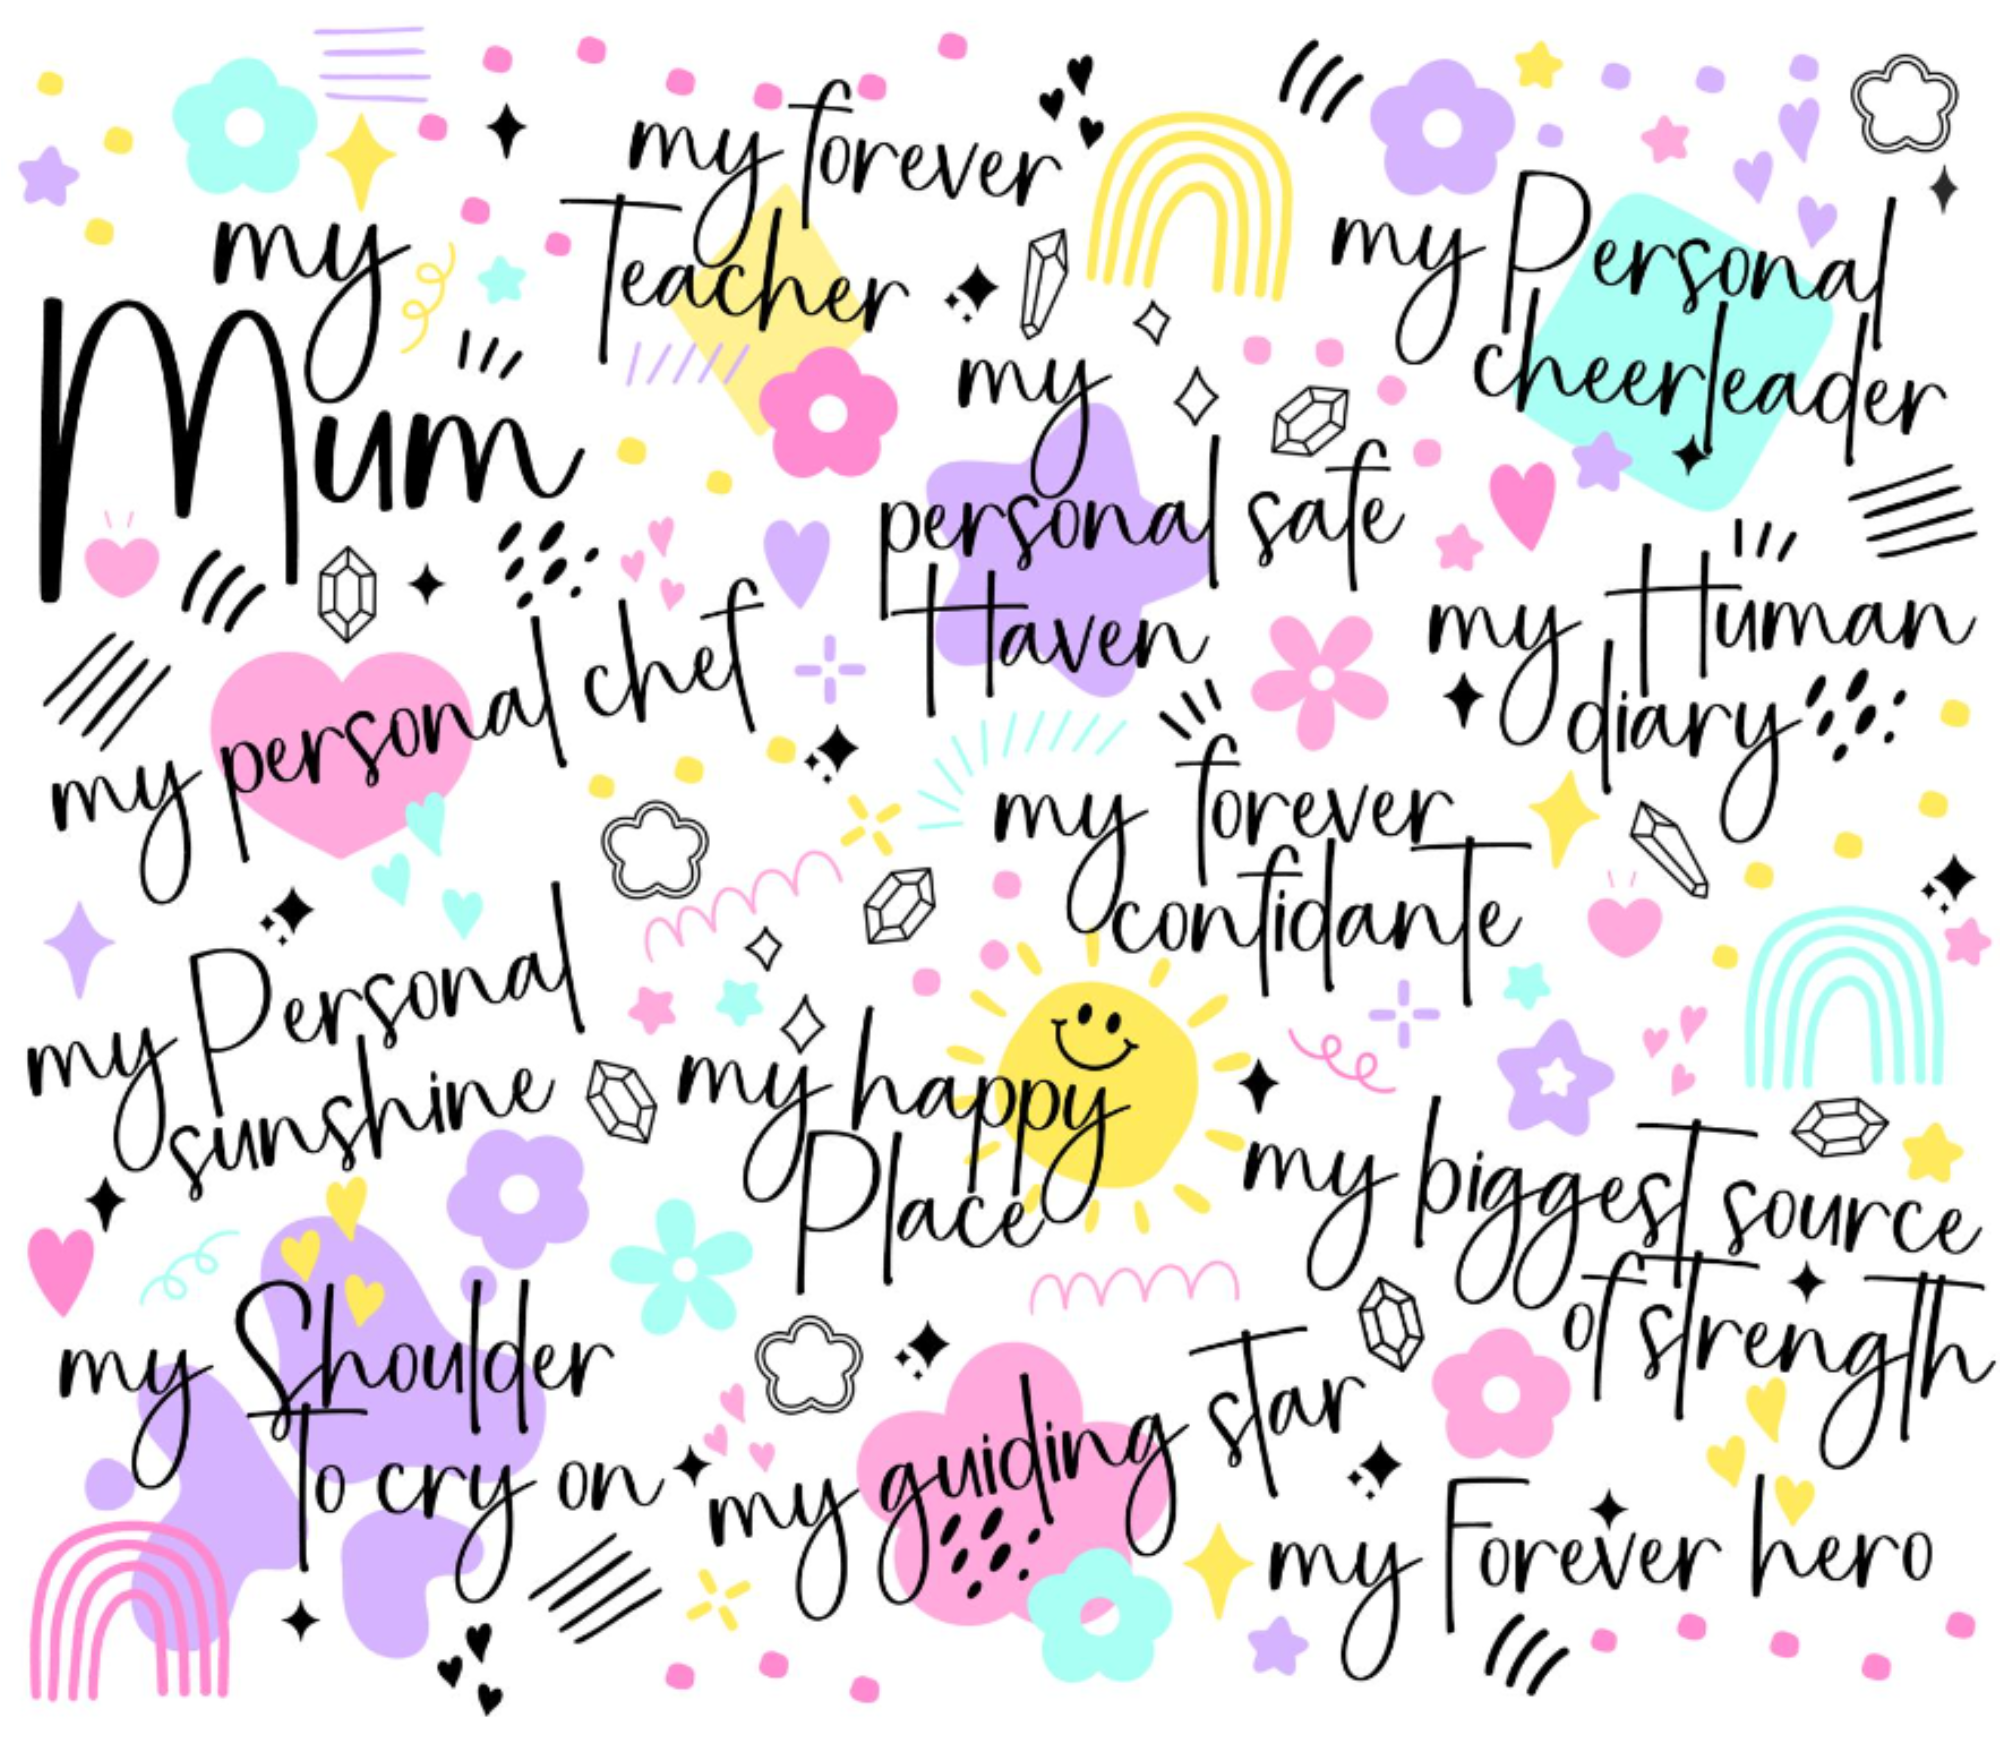 my
Mum
my forever
Teacher
my Personal
cheerleader
my
personal safe
Haven
my Human
diary
my personal chef
my forever
confidante
my Personal
sunshine
my happy
Place
my biggest source
of strength
my Shoulder
To cry on
my guiding star
my Forever hero